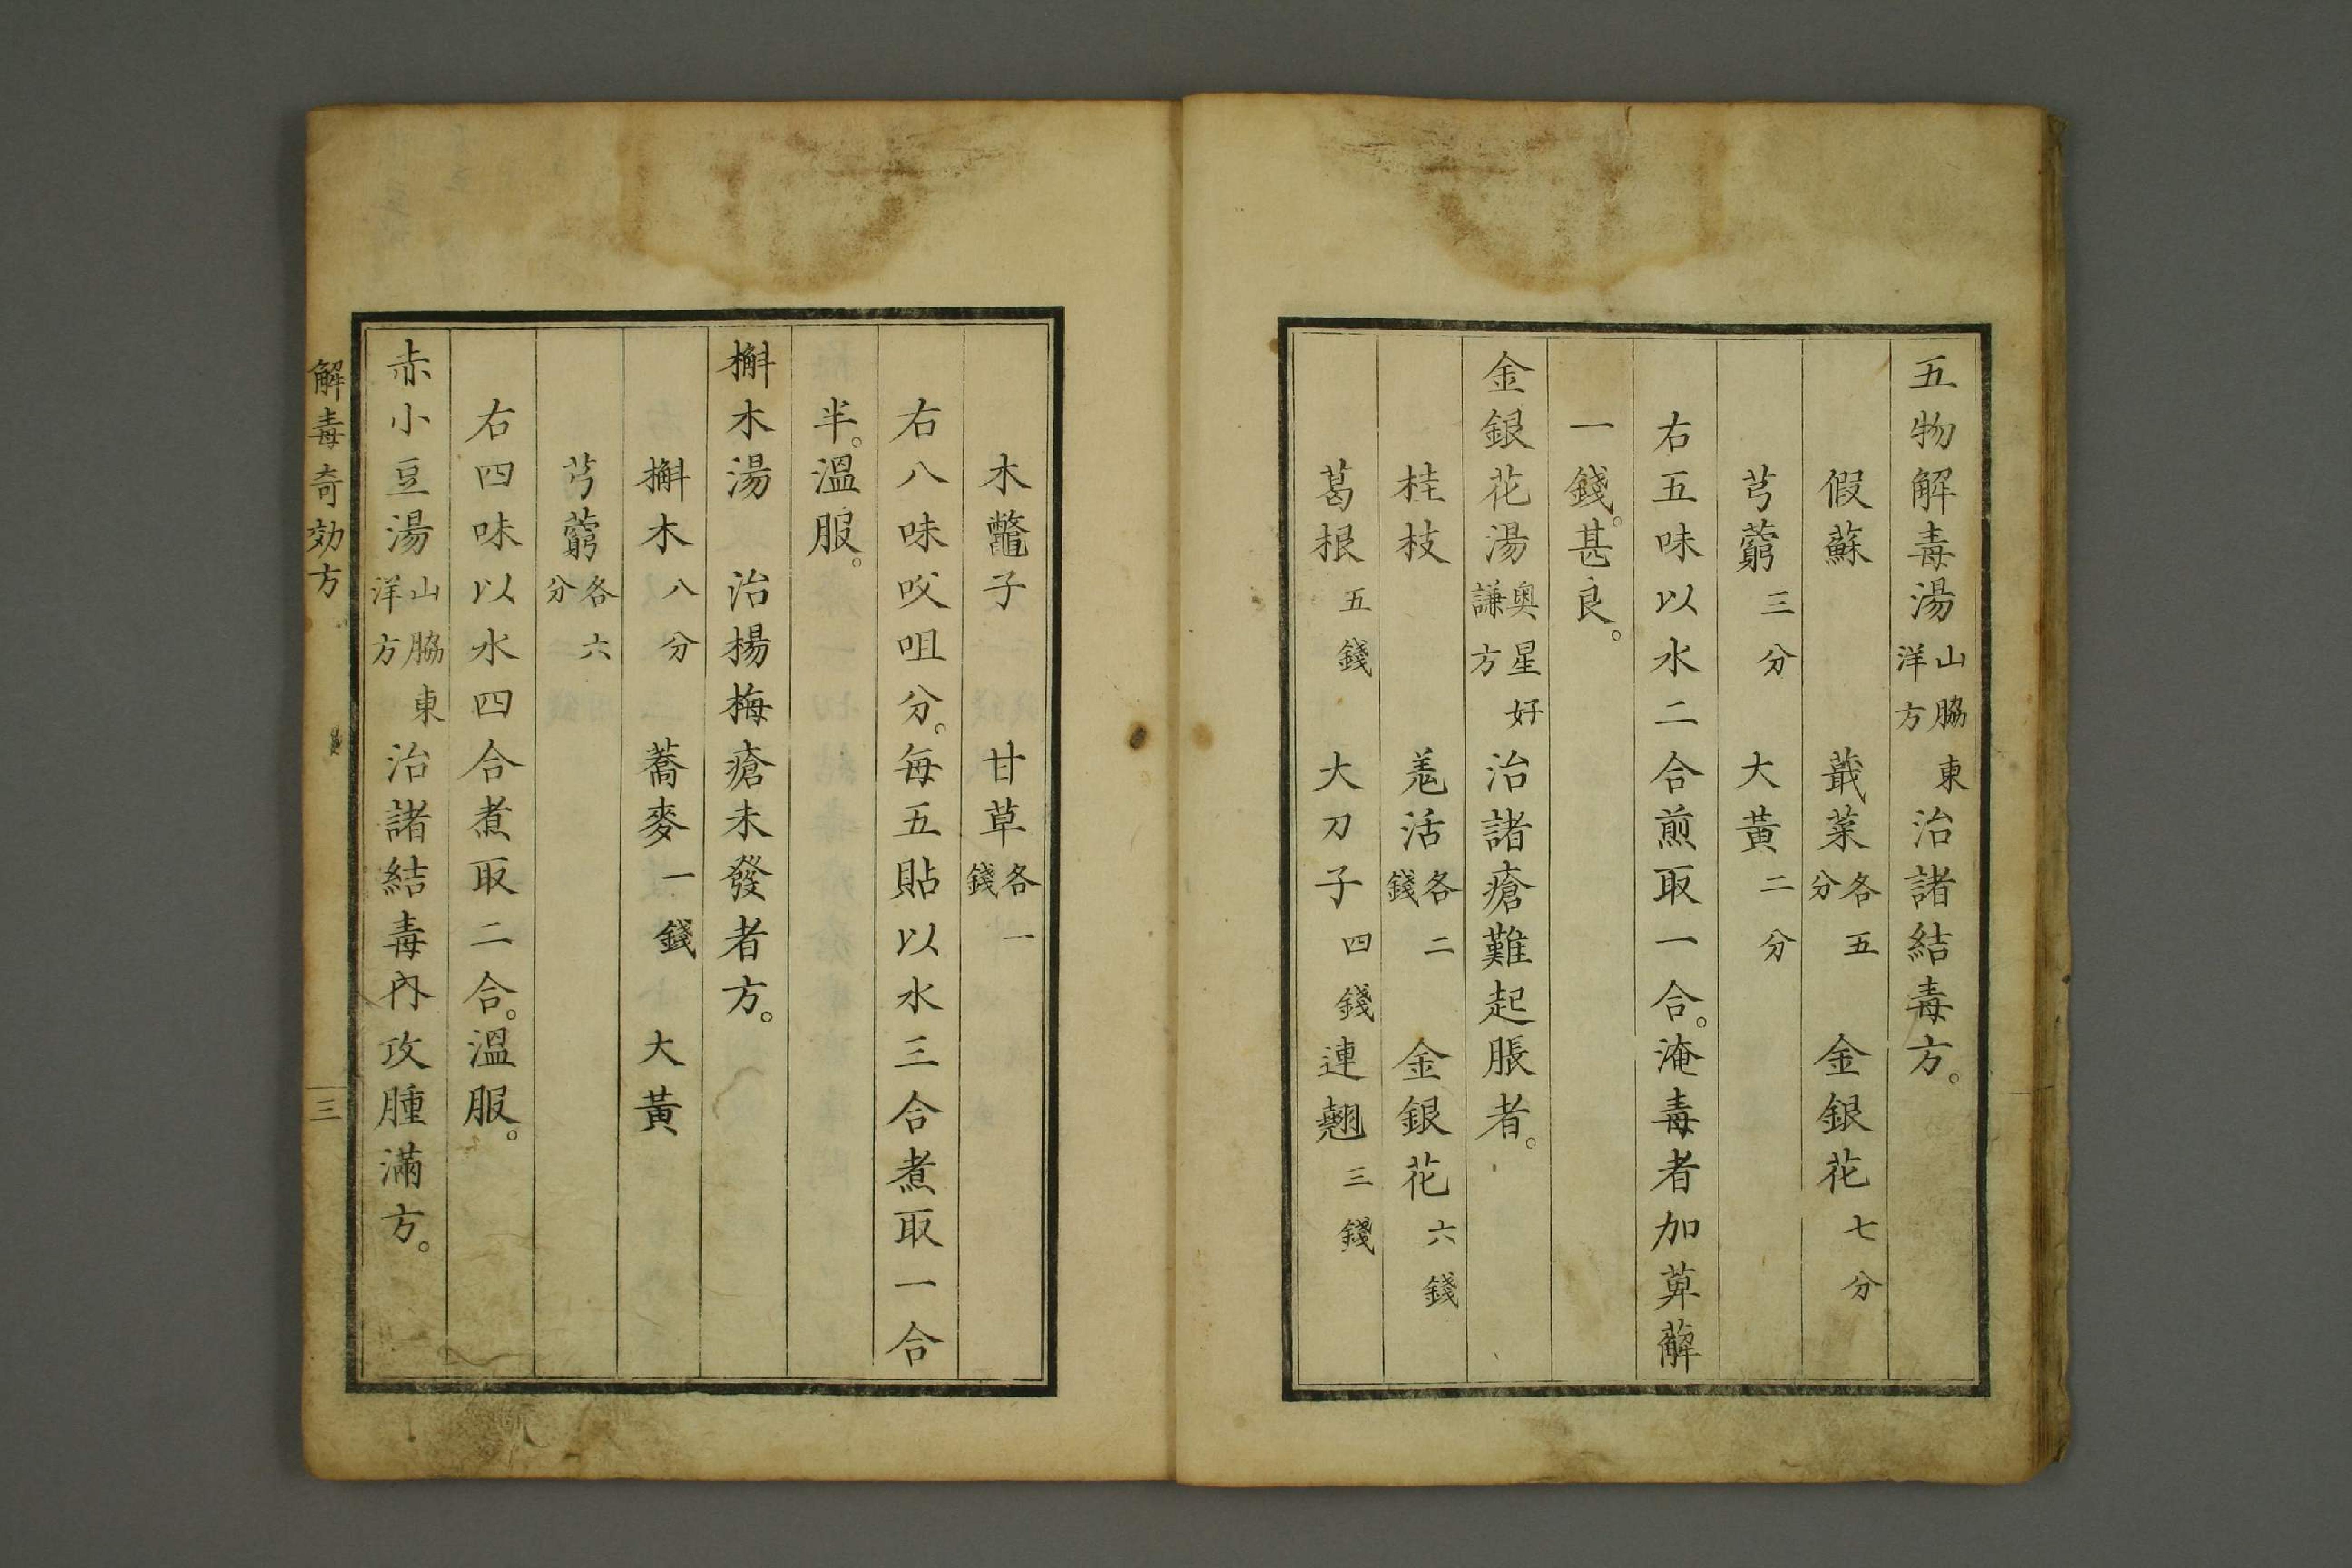 五物解毒湯山脇東洋方治諸結毒方。
假蘇　蕺菜各五分　金銀花七分
芎藭三分　大黃二分
右五味以水二合煎取一合。淹毒者加萆薢
一錢。甚良。
金銀花湯奥星好謙方治諸瘡難起脹者。
桂枝　羗活各二錢　金銀花六錢
葛根五錢　大刀子四錢　連翹三錢
木鼈子　甘草各一錢
右八味㕮咀分。每五貼以水三合煮取一合
半。溫服。
槲木湯　治楊梅瘡未發者方。
槲木八分　蕎麥一錢　大黃
芎藭各六分
右四味以水四合煮取二合。溫服。
赤小豆湯山脇東洋方治諸結毒內攻腫滿方。
解毒奇効方　三